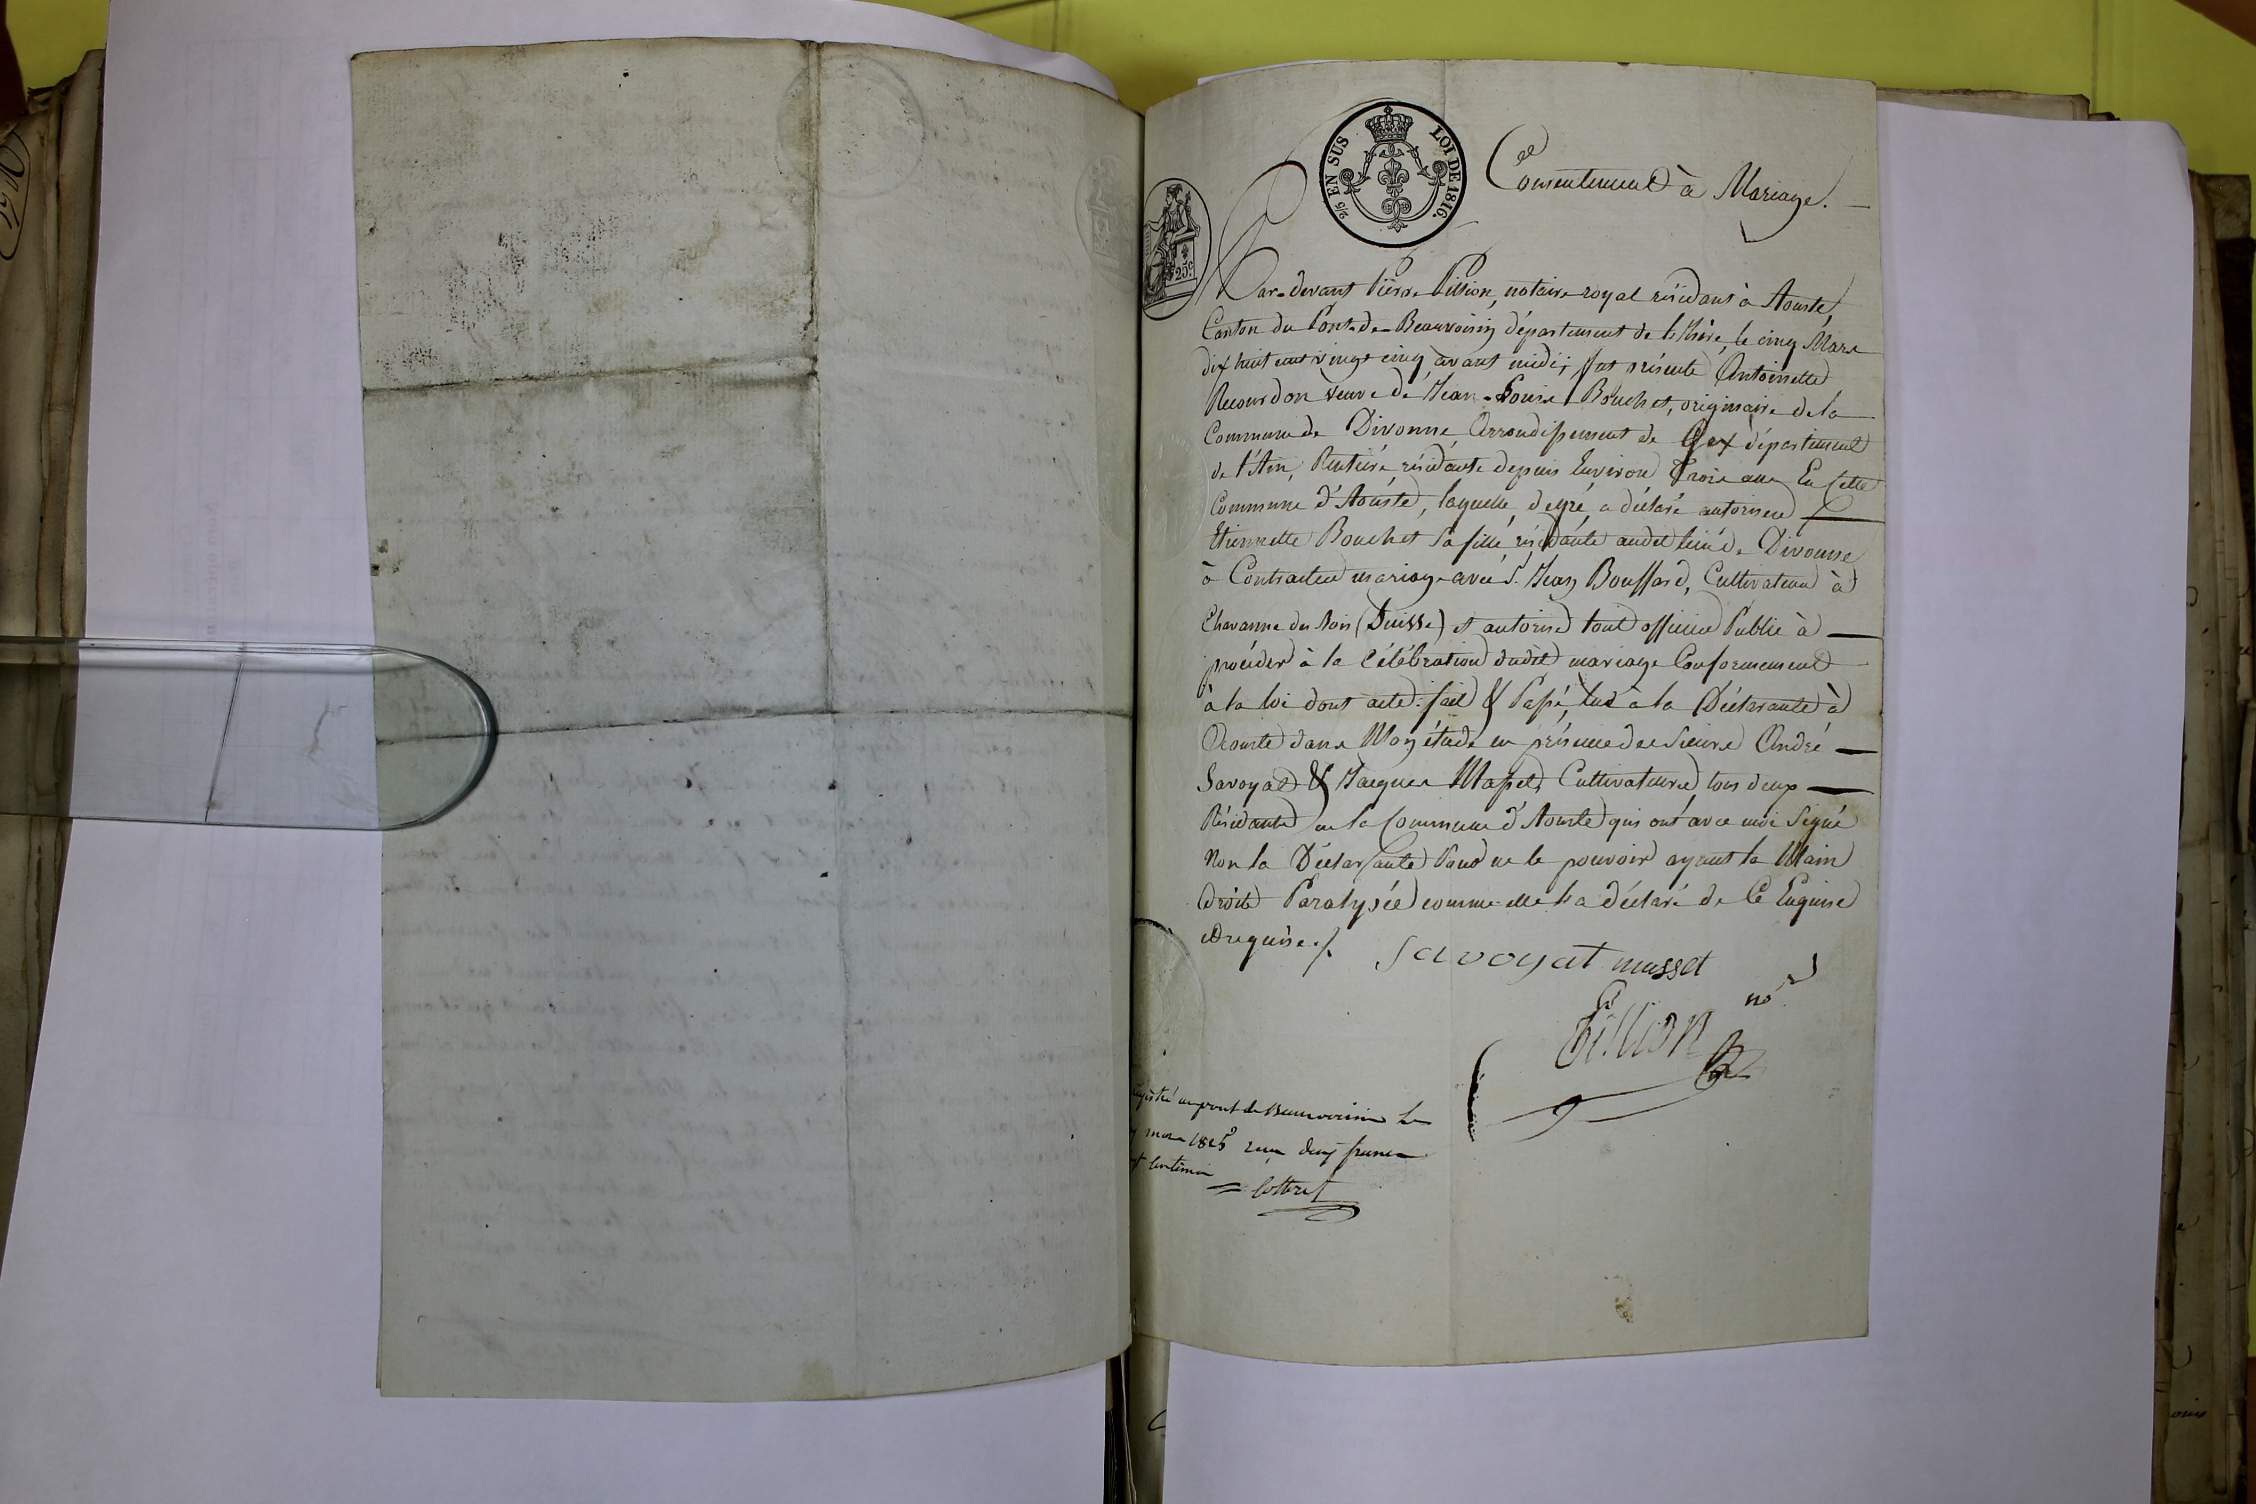 2/5 EN SUS
LOI DE 1816.
25c
Consentement à Mariage.
Par-devant Pierre Pillion, notaire royal résidant à Aouste,
Canton du Pont-de-Beauvoisin département de l'Isère, le cinq Mars
dix huit cent vingt cinq avant midi; fut présente Antoinette
Recourdon veuve de Jean-Louis Bouchet, originaire de la
Commune de Divonne, Arrondissement de Gex département
de l'Ain, Rentière, résidante depuis Environ Trois ans En Cette
Commune d'Aouste, laquelle, de gré, a déclaré autoriser
Etiennette Bouchet sa fille, résidante audit lieu de Divonne
à Contracter mariage avec S. Jean Bouffard, Cultivateur à
Chavanne des bois (Suisse) et autorise tout officier Public à
procéder à la Célébration dudit mariage Conformement
à la loi dont acte: fait & Passé, lu à la Déclarante à
Aouste dans Mon étude en présence des sieurs André
Savoyat & Jacques Masset, Cultivateurs, tous deux
Résidants en la Commune d'Aouste qui ont avec moi Signé
Non la Déclarante Pour ne le pouvoir ayant la Main
droite Paralysée comme elle l'a déclaré de Ce Enquise
et requise./.
Savoyat musset
Pillion no.re
au pont de Beauvoisin le
mars 1825 reçu deux francs
centimes